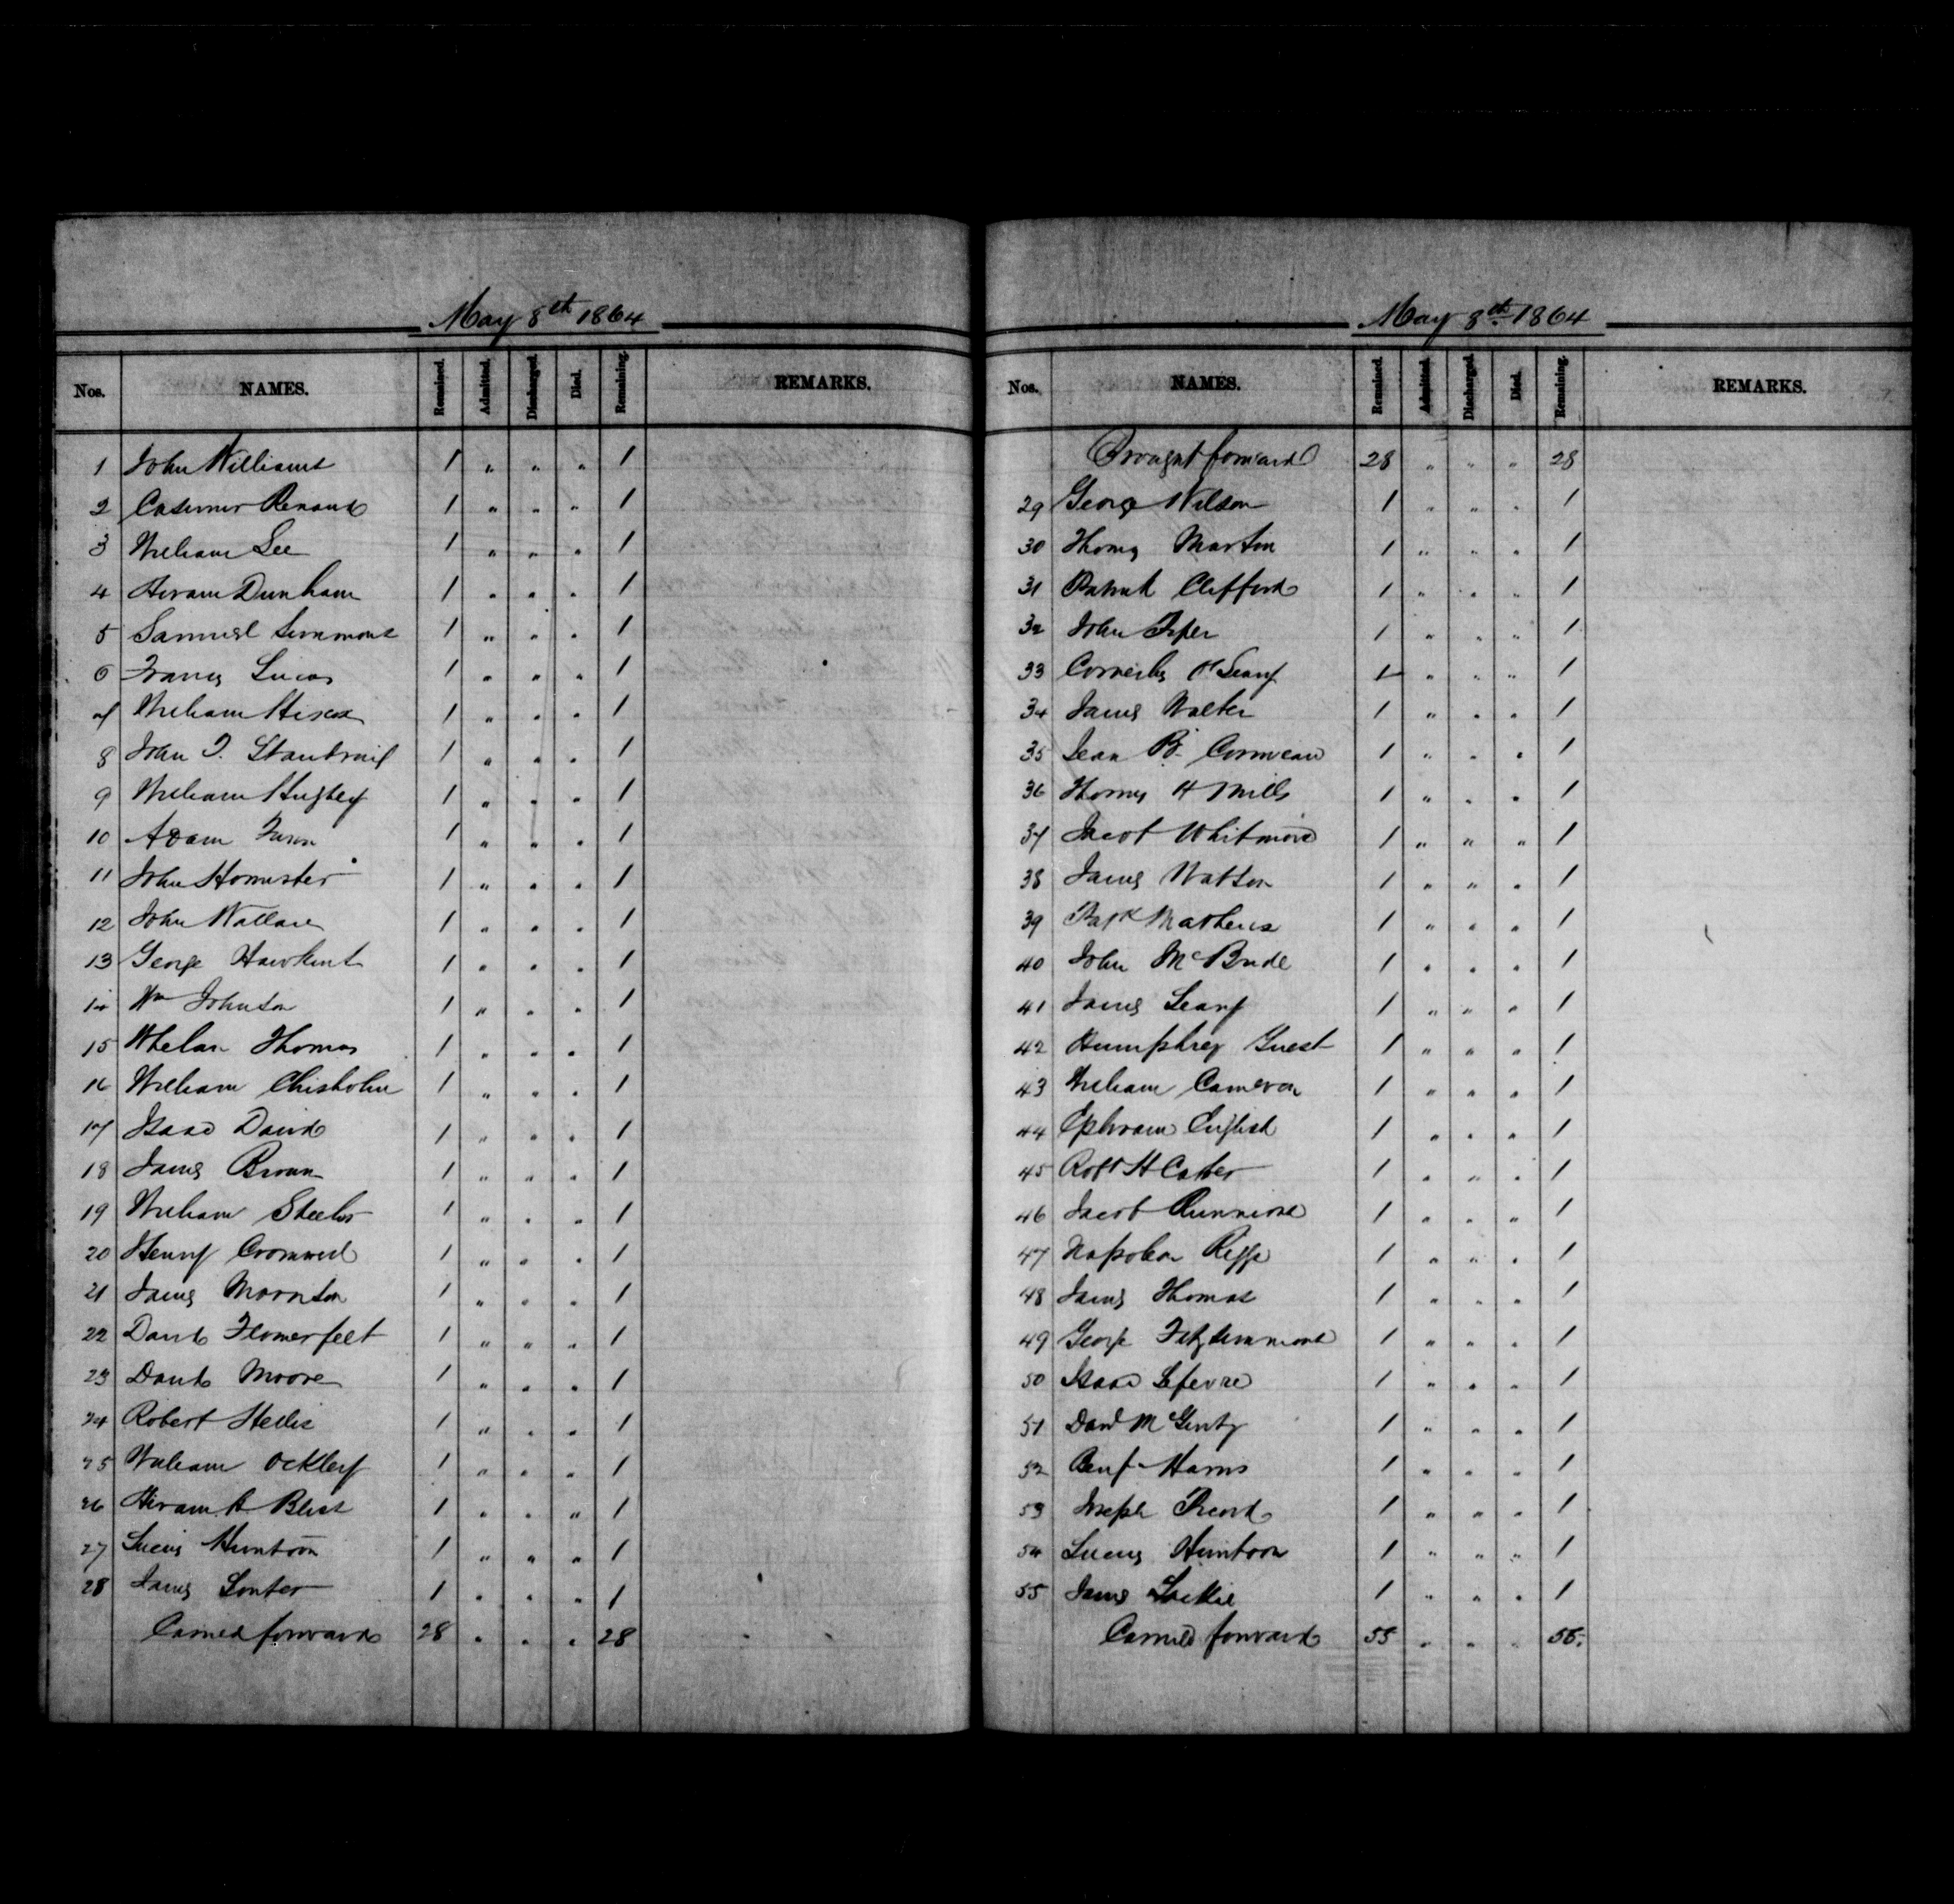 May 8th 1864
Nos. NAMES. Remained. Admitted. Discharged. Died. Remaining. REMARKS.
1 John Williams 1 " " " 1
2 Casemer Renaud 1 " " " 1
3 William Lee 1 " " " 1
4 Hiram Dunham 1 " " " 1
5 Samuel Simmons 1 " " " 1
6 Francis Lucas 1 " " " 1
7 William Hiscox 1 " " " 1
8 John T. 1 " " " 1
9 William Hughey 1 " " " 1
10 Adam 1 " " " 1
11 John Homister 1 " " " 1
12 John Wallace 1 " " " 1
13 George Hawkins 1 " " " 1
14 Wm Johnson 1 " " " 1
15 Whelan Thomas 1 " " " 1
16 William Chisholm 1 " " " 1
17 Isaac David 1 " " " 1
18 James Brown 1 " " " 1
19 William Steeler 1 " " " 1
20 Henry Cromwell 1 " " " 1
21 James Thornton 1 " " " 1
22 David Flomerfelt 1 " " " 1
23 David Moore 1 " " " 1
24 Robert Hellis 1 " " " 1
25 William Ockley 1 " " " 1
26 Hiram A Blist 1 " " " 1
27 Lucius Huntoon 1 " " " 1
28 James Souter 1 " " " 1
Carried forward 28 " " " 28
May 8th 1864
Nos. NAMES. Remained. Admitted. Discharged. Died. Remaining. REMARKS.
Brought forward 28 " " " 28
29 George Wilson 1 " " " 1
30 Thomas Marton 1 " " " 1
31 Patrick Clifford 1 " " " 1
32 John 1 " " " 1
33 Cornelius O'Leary 1 " " " 1
34 James Walter 1 " " " 1
35 Jean B. Cormeau 1 " " " 1
36 Thomas H Mills 1 " " " 1
37 Jacob Whitmore 1 " " " 1
38 James Watson 1 " " " 1
39 Patk Mathews 1 " " " 1
40 John McBride 1 " " " 1
41 James Leary 1 " " " 1
42 Humphrey Guest 1 " " " 1
43 William Cameron 1 " " " 1
44 Ephraim English 1 " " " 1
45 Robt H Carter 1 " " " 1
46 Jacob Runnions 1 " " " 1
47 Napoleon 1 " " " 1
48 James Thomas 1 " " " 1
49 George Fitzsimmons 1 " " " 1
50 Isaac Lefevre 1 " " " 1
51 David McGinty 1 " " " 1
52 Benj. Harris 1 " " " 1
53 Joseph Picord 1 " " " 1
54 Lucius Huntoon 1 " " " 1
55 James Lackie 1 " " " 1
Carried forward 55 " " " 55.